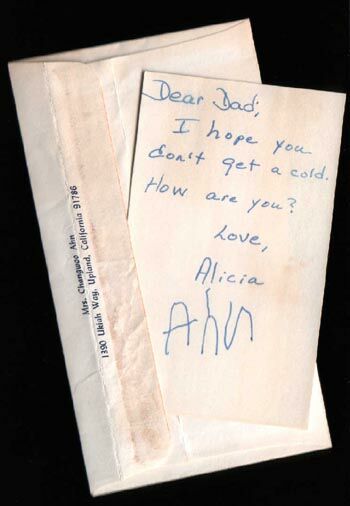 Dear Dad,
I hope you
don't get a cold.
How are you?
Love,
Alicia
Ahn
Mrs. Changwoo Ahn
1390 Ukiah Way, Upland, California 91786